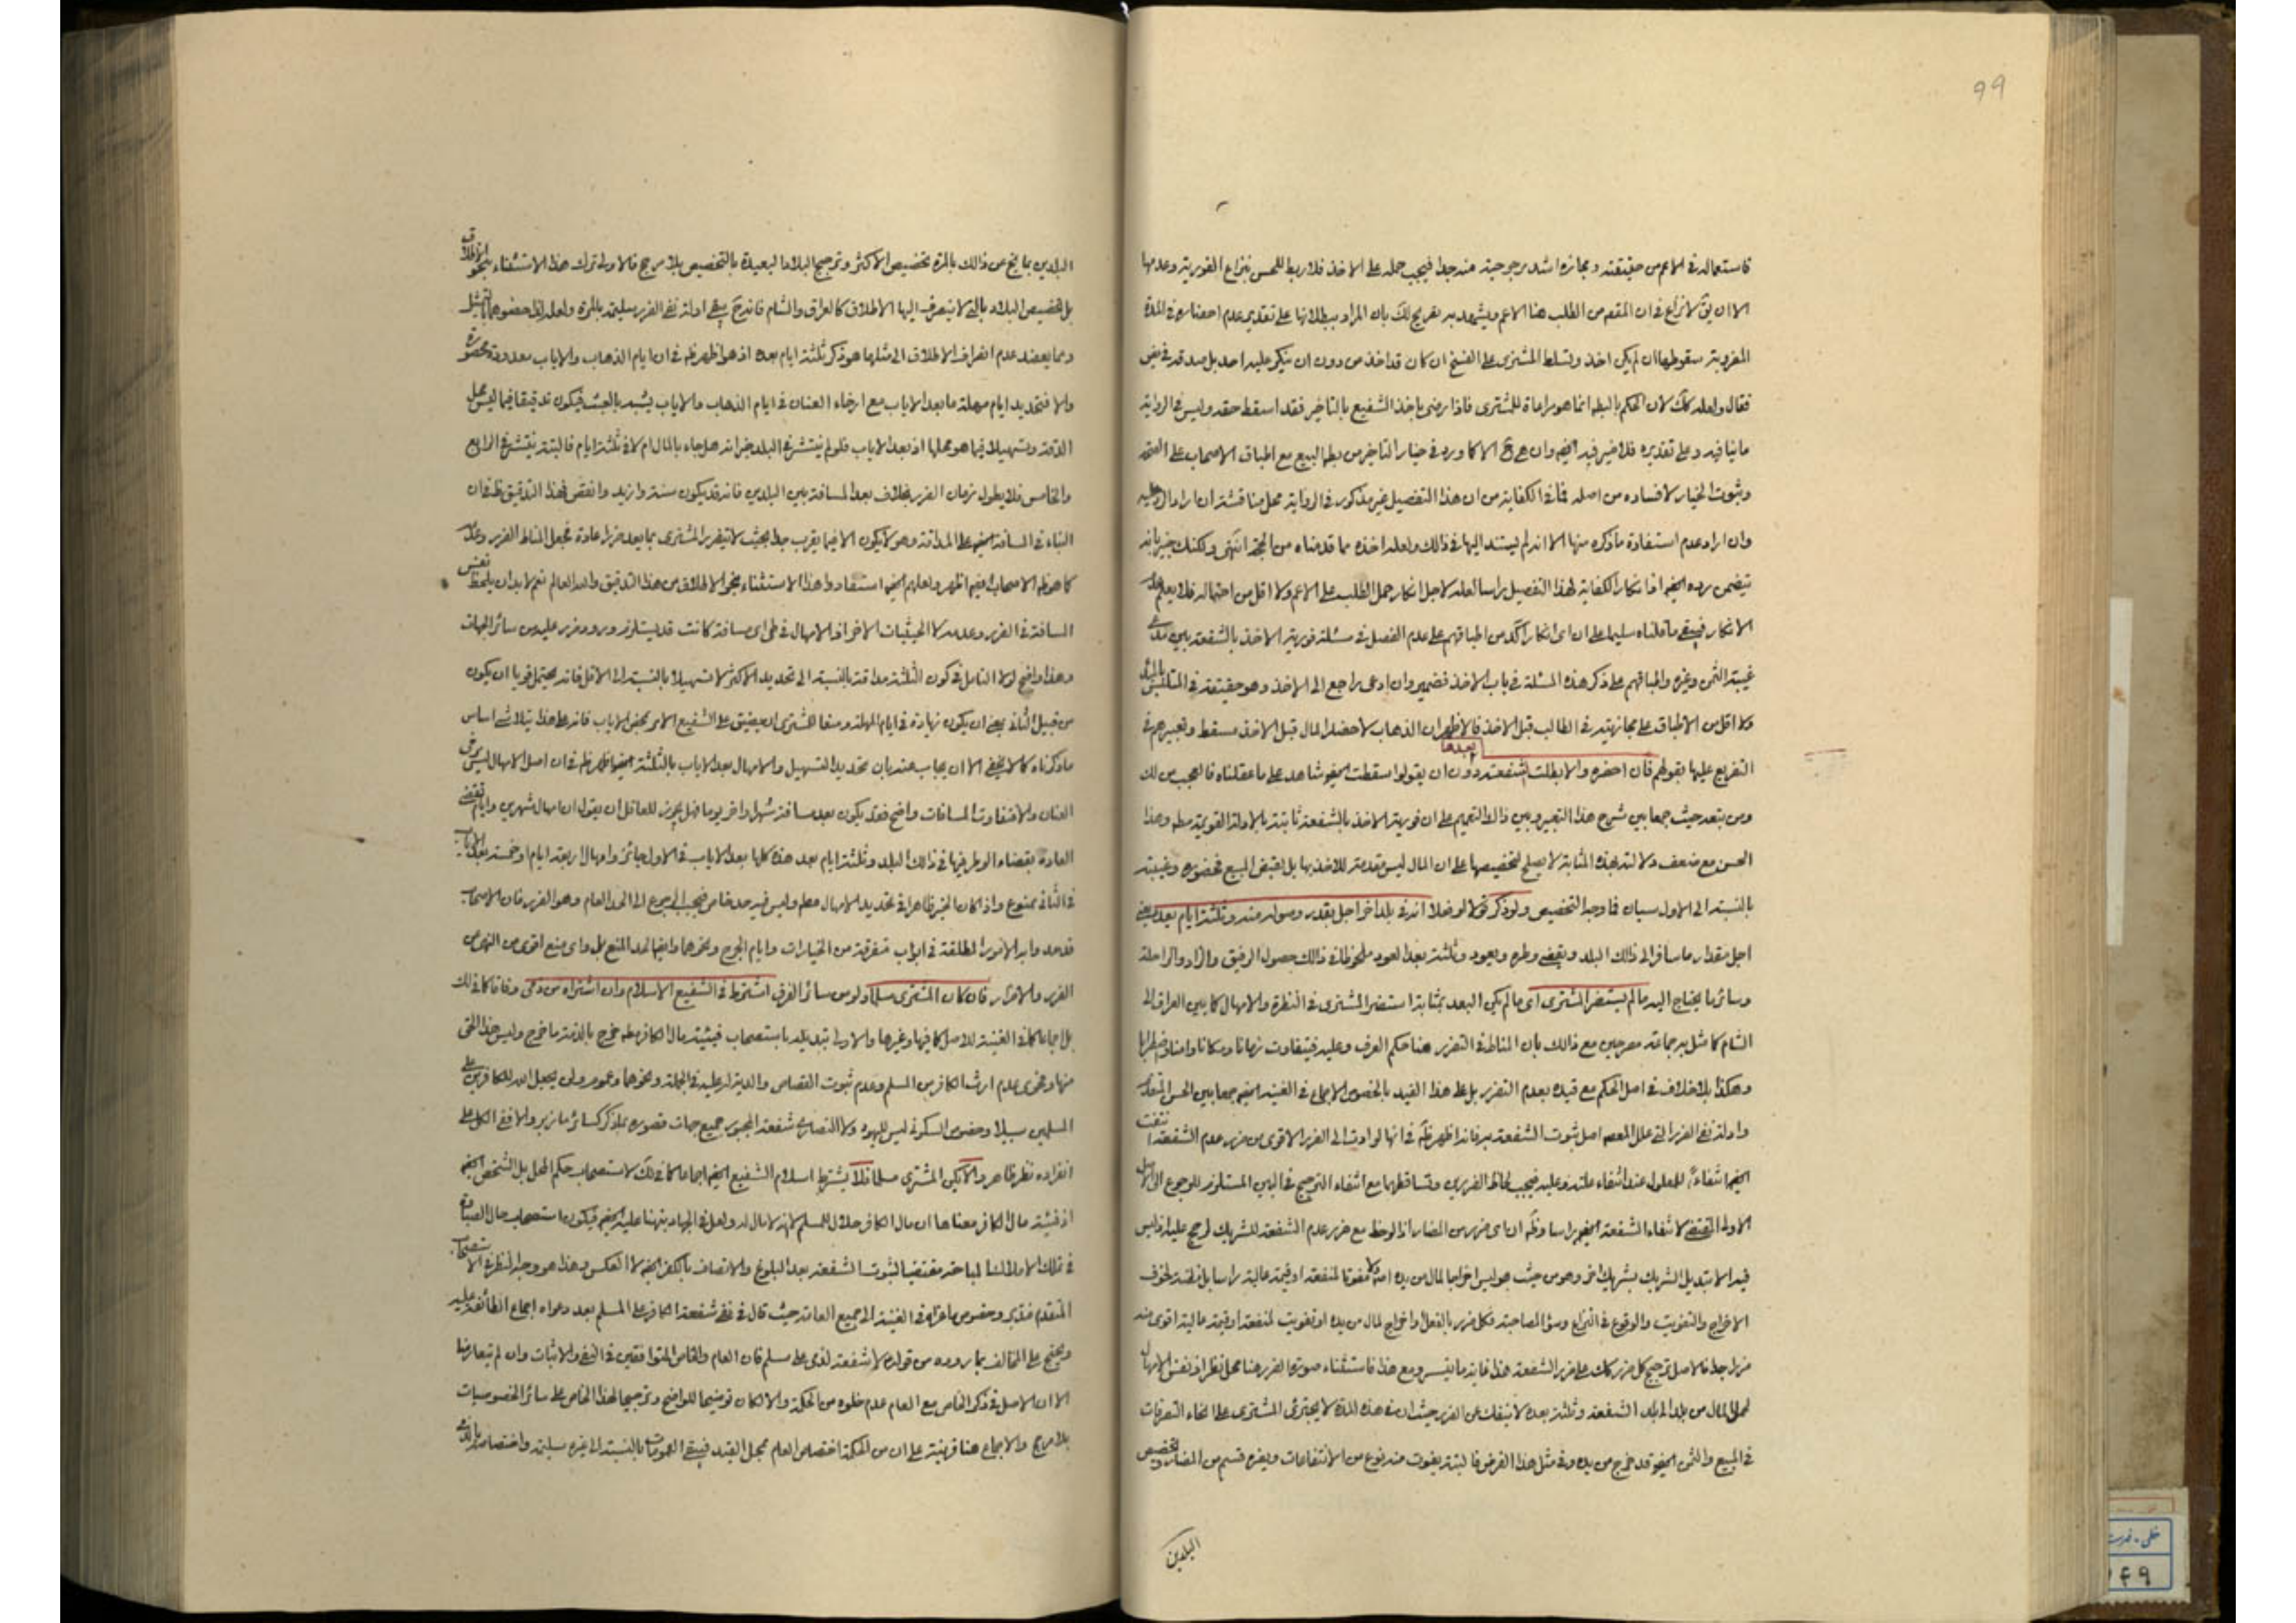 ٩٩
فاستعماله في الاعم من حقيقته ومجازه اشد مرجوحية منه جدا فيجب حمله على الاخذ فلا ربط للحسن بنزاع الفورية وعدمها
الا ان يق لا نزاع في ان المقص من الطلب هنا الاعم ويشهد به تفريع لك بان المراد ببطلانها على تقدير عدم احضاره في المدة
المضروبة سقوطها ان لم يكن اخذ وتسلط المشتري على الفسخ ان كان قد اخذ من دون ان ينكر عليه احد بل صدقه في بعض
فقال ولعله كك لان الحكم بالبطه انما هو مراعاة للمشتري فاذا رضي باخذ الشفيع بالتاخير فقد اسقط حقه وليس في الرواية
ما ينافيه وعلى تقديره فلا ضير فيه ايضا وان هي ح الا كما ورد في خيار التاخير من بطه البيع مع اطباق الاصحاب على الصحة
وثبوت الخيار لا فساده من اصله فما في الكفاية من ان هذا التفصيل غير مذكور في الرواية محل مناقشة ان اراد الرد عليه
وان اراد عدم استفادة ما ذكره منها الا انه لم يستند اليها في ذالك ولعله اخذه مما قدمناه من الحجة انتهى ولكنك خبير بانه
يتضمن رده ايضا اذ انكار الكفاية لهذا التفصيل راسا لعله لاجل انكار حمل الطلب على الاعم ولا اقل من احتماله فلا يعلم
الانكار فيبقى ما قلناه سليما على ان اي انكار اكد من اطباقهم على عدم الفصل في مسئلة فورية الاخذ بالشفعة بين
غيبة الثمن وغيره واطباقهم على ذكر هذه المسئلة في باب الاخذ فضمير وان ادعى راجع الى الاخذ وهو حقيقة في المتلبس
ولا اقل من الاطباق على مجازيته في الطالب قبل الاخذ فالاظهر ان الذهاب لاحضار المال قبل الاخذ مسقط وتعبيرهم في
بعدها
التفريع عليها بقولهم فان احضره والا بطلت شفعته دون ان يقولوا سقطت ايضا شاهد على ما عقلناه فالعجب من لك
ومن بتعه حيث جمعا بين شرح هذا التعبير وبين ذالك التعميم على ان فورية الاخذ بالشفعة ثابتة بالادلة القوية مطه وهذا
الحسن مع ضعف دلالته بهذه المثابة لا يصلح لتخصيصها على ان المال ليس مقدمة للاخذ بها بل لقبض المبيع فحضوره وغيبته
بالنسبة الى الاول سيان فما وجه التخصيص ولو ذكر قولا لو فعلا انه في بلد اخر اجل بقدر وصوله منه وثلثة ايام بعده يعني
اجل مقدار ما سافر الى ذالك البلد ويقضي وطره ويعود وثلثة بعد العود ملحوظا في ذالك حصول الرفيق والزاد والراحلة
وسائر ما يحتاج اليه ما لم يستضر المشتري اي ما لم يكن البعد بمثابة استضر المشتري في النظرة والامهال كما بين العراق الى
الشام كما مثل به جماعة مصرحين مع ذالك بان المناط في التضرر هنا حكم العرف وعليه فيتفاوت زمانا ومكانا
وهكذا بلا خلاف في اصل الحكم مع قيده بعدم التضرر بل على هذا القيد بالخصوص الاجماع في الغنية ايضا جمعا بين الحسن المتقدم
وادلة نفي الضرر التي علل المعظم اصل ثبوت الشفعة به فانه اظهر ظه في انها لو ادت الى الضرر الاقوى من ضرر عدم الشفعة انتفت
ايضا انتفاء المعلول عند انتفاء علته وعليه فيجب لحاظ الضررين وتساقطهما مع انتفاء الترجيح في البين المستلزم للرجوع الى الاصل
الاولى المقتضي لانتفاء الشفعة ايضا راسا وظه ان اي ضرر من المضار اذا لوحظ مع ضرر عدم الشفعة للشريك لرجح عليه اذ ليس
فيه الا تبديل الشريك بشريك اخر وهو من حيث هو ليس اخراجا لمال من يده ولا مفوتا لمنفعة او قيمة مالية راسا بل مظنة لخوف
الاخراج والتفويت والوقوع في النزاع وسوء المصاحبة فكل ضرر بالفعل واخراج لمال من يده او تفويت لمنفعة او قيمة مالية اقوى منه
ضررا جدا فالاصل ترجيح كل ضرر كك على ضرر الشفعة هذا غاية ما تيسر ومع هذا فاستثناء صورتها لضرر هنا محل نظر اذ نفس الامهال
لحمل المال من بلد الى بلد الشفعة وثلثة بعده لا ينفك عن الضرر حيث ان في هذه المدة لا يجتري المشتري على انحاء التصرفات
في المبيع والثمن ايضا قد خرج من يده وفي مثل هذا الفرض فالبتة يفوت منه نوع من الانتفاعات ويضره قسم من المضار وتخصيص
البلدين
البلدين بما يخرج عن ذالك بالمرة تخصيص الاكثر وترجيح البلاد البعيدة بالتخصيص بلا مرجح فالاولى ترك هذا الاستثناء بنحو الاطلاق
بل تخصيص البلاد بالتي لا ينصرف اليها الاطلاق كالعراق والشام فانه ح يبقى ادلة نفي الضرر سليمة بالمرة ولعله لذا خصوهما بالتمثيل
ومما يعضد عدم انصراف الاطلاق الى مثلها هو ذكر ثلثة ايام بعده اذ هو اظهر ظه في ان ايام الذهاب والاياب معدودة محصورة
والا فتحديد ايام مهلة ما بعد الاياب مع ارخاء العنان في ايام الذهاب والاياب يشبه بالعبث فيكون تدقيقا فيما ليس محل
الدقة وتسهيلا فيما هو محلها اذ بعد الاياب فلو لم ينتشر في البلد خبر انه هل جاء بالمال ام لا في ثلثة ايام فالبتة ينتشر في الرابع
والخامس فلا يطول زمان الضرر بخلاف بعد المسافة بين البلدين فانه قد يكون سنة وازيد وانقص فهذا التدقيق ظه في ان
البناء في المسافة ايضا على المداقة وهو لا يكون الا فيما يقرب جدا بحيث لا يتضرر المشتري بما يعد ضررا عادة فجعل المناط الضرر وعدمه
كما هو ظه الاصحاب ايضا اظهر ولعلهم ايضا استفادوا هذا الاستثناء بنحو الاطلاق من هذا التدقيق والله العالم نعم لا بد ان يلحظ نفس
المسافة في الضرر وعدمه لا الحيثيات الاخر اذ الامهال في طي اي مسافة كانت قد يستلزم ورود ضرر عليه من سائر الجهات
وهذا واضح لولا التامل في كون الثلثة مداقة بالنسبة الى تحديد الاكثر لا تسهيلا بالنسبة الى الاقل فانه يحتمل قويا ان يكون
من قبيل الثاني يعني ان يكون زيادة في ايام المهلة ومنعا للمشتري ان يضيق على الشفيع الامر بمحض الاياب فانه على هذا يتلاشى اساس
ما ذكرناه كما لا يخفى الا ان يجاب عنه بان تحديد التسهيل والامهال بعد الاياب بالثلثة ايضا اظهر ظه في ان اصل الامهال ليس مرخى
العنان والا فتفاوت المسافات واضح فقد يكون بعد مسافة شهرا واخر يوما فهل يجوز للعاقل ان يقول ان امهال شهرين وايام تقضي
العادة بقضاء الوطر فيها في ذالك البلد وثلثة ايام بعد هذه كلها بعد الاياب في الاول جائز وامهال اربعة ايام او خمسة بعد الاياب
في الثاني ممنوع واذ كان الخبر ظاهرا في تحديد الامهال مطه وليس فيه حد خاص فيجب الرجوع الى الحد العام وهو الضرر فان الاصحاب
قد حدوا به الامور المطلقة في ابواب متفرقة من الخيارات وايام الحرج ونحوها وايضا لحد المنع بل واي منع اقوى من النهي من
الضرر والاضرار فان كان المشتري مسلما ولو من سائر الفرق اشترط في الشفيع الاسلام وان اشتراه من ذمي وفاقا كما في لك
بل اجماعا كما في الغنية للاصل كما فيها وغيرها والاولى تبديله باستصحاب فيئية مال الكافر مطه خرج بالذمة ما خرج وليس هذا الحق
منها وفحوى عدم ارث الكافر من المسلم وعدم ثبوت القصاص والدية له عليه في الجملة ونحوها وعموم ولن يجعل الله للكافرين على
المسلمين سبيلا وخصوص السكوني ليس لليهود ولا النصارى شفعة المجبور جميع جهات قصوره بما ذكر كسائر ما زبر والا ففي الكل على
انفراده نظر ظاهر والا يكن المشتري مسلما فلا يشترط اسلام الشفيع ايضا اجماعا كما في لك لاستصحاب حكم المحل بل الشخص ايضا
اذ فيئية مال الكافر معناها ان مال الكافر حلال للمسلم لا انه لا مال له ولعل في الجهاد ينبهنا عليه ايضا فيكون استصحاب حال الصبا
في تلك الاملاك المباحة مقتضيا لثبوت الشفعة بعد البلوغ والاتصاف بالكفر ايضا لا العكس هذا هو وجه النظر في الاستصحاب
المتقدم فتدبر وخصوص ما عزاه في الغنية الى جميع العامة حيث قال في نفي شفعة الكافر على المسلم بعد دعواه اجماع الطائفة عليه
ونحتج على المخالف بما رووه من قوله لا شفعة لذمي على مسلم فان العام والخاص المتوافقين في النفي والاثبات وان لم يتعارضا
الا ان الاصل في ذكر الخاص مع العام عدم خلوه من الحكمة والا لكان توضيحا للواضح وترجيحا لهذا الخاص على سائر الخصوصيات
بلا مرجح والاجماع هنا قرينة على ان من الحكمة اختصاص العام بمحل القيد فيبقى العمومات بالنسبة الى غيره سليمة واختصاصه بالذمي